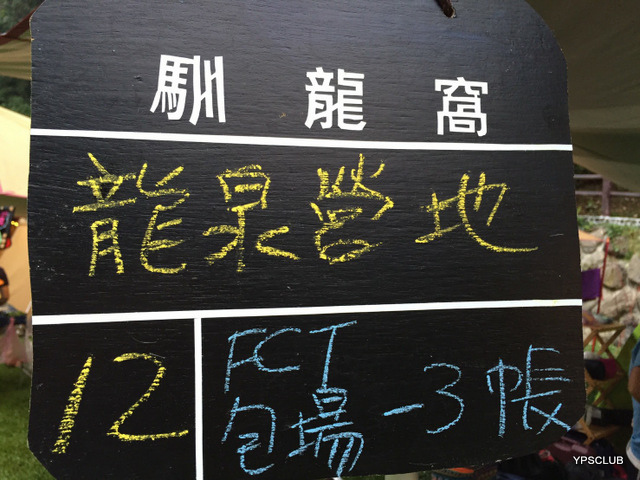 馴龍窩
龍泉營地
12
FCT
包場-3帳
YPSCLUB